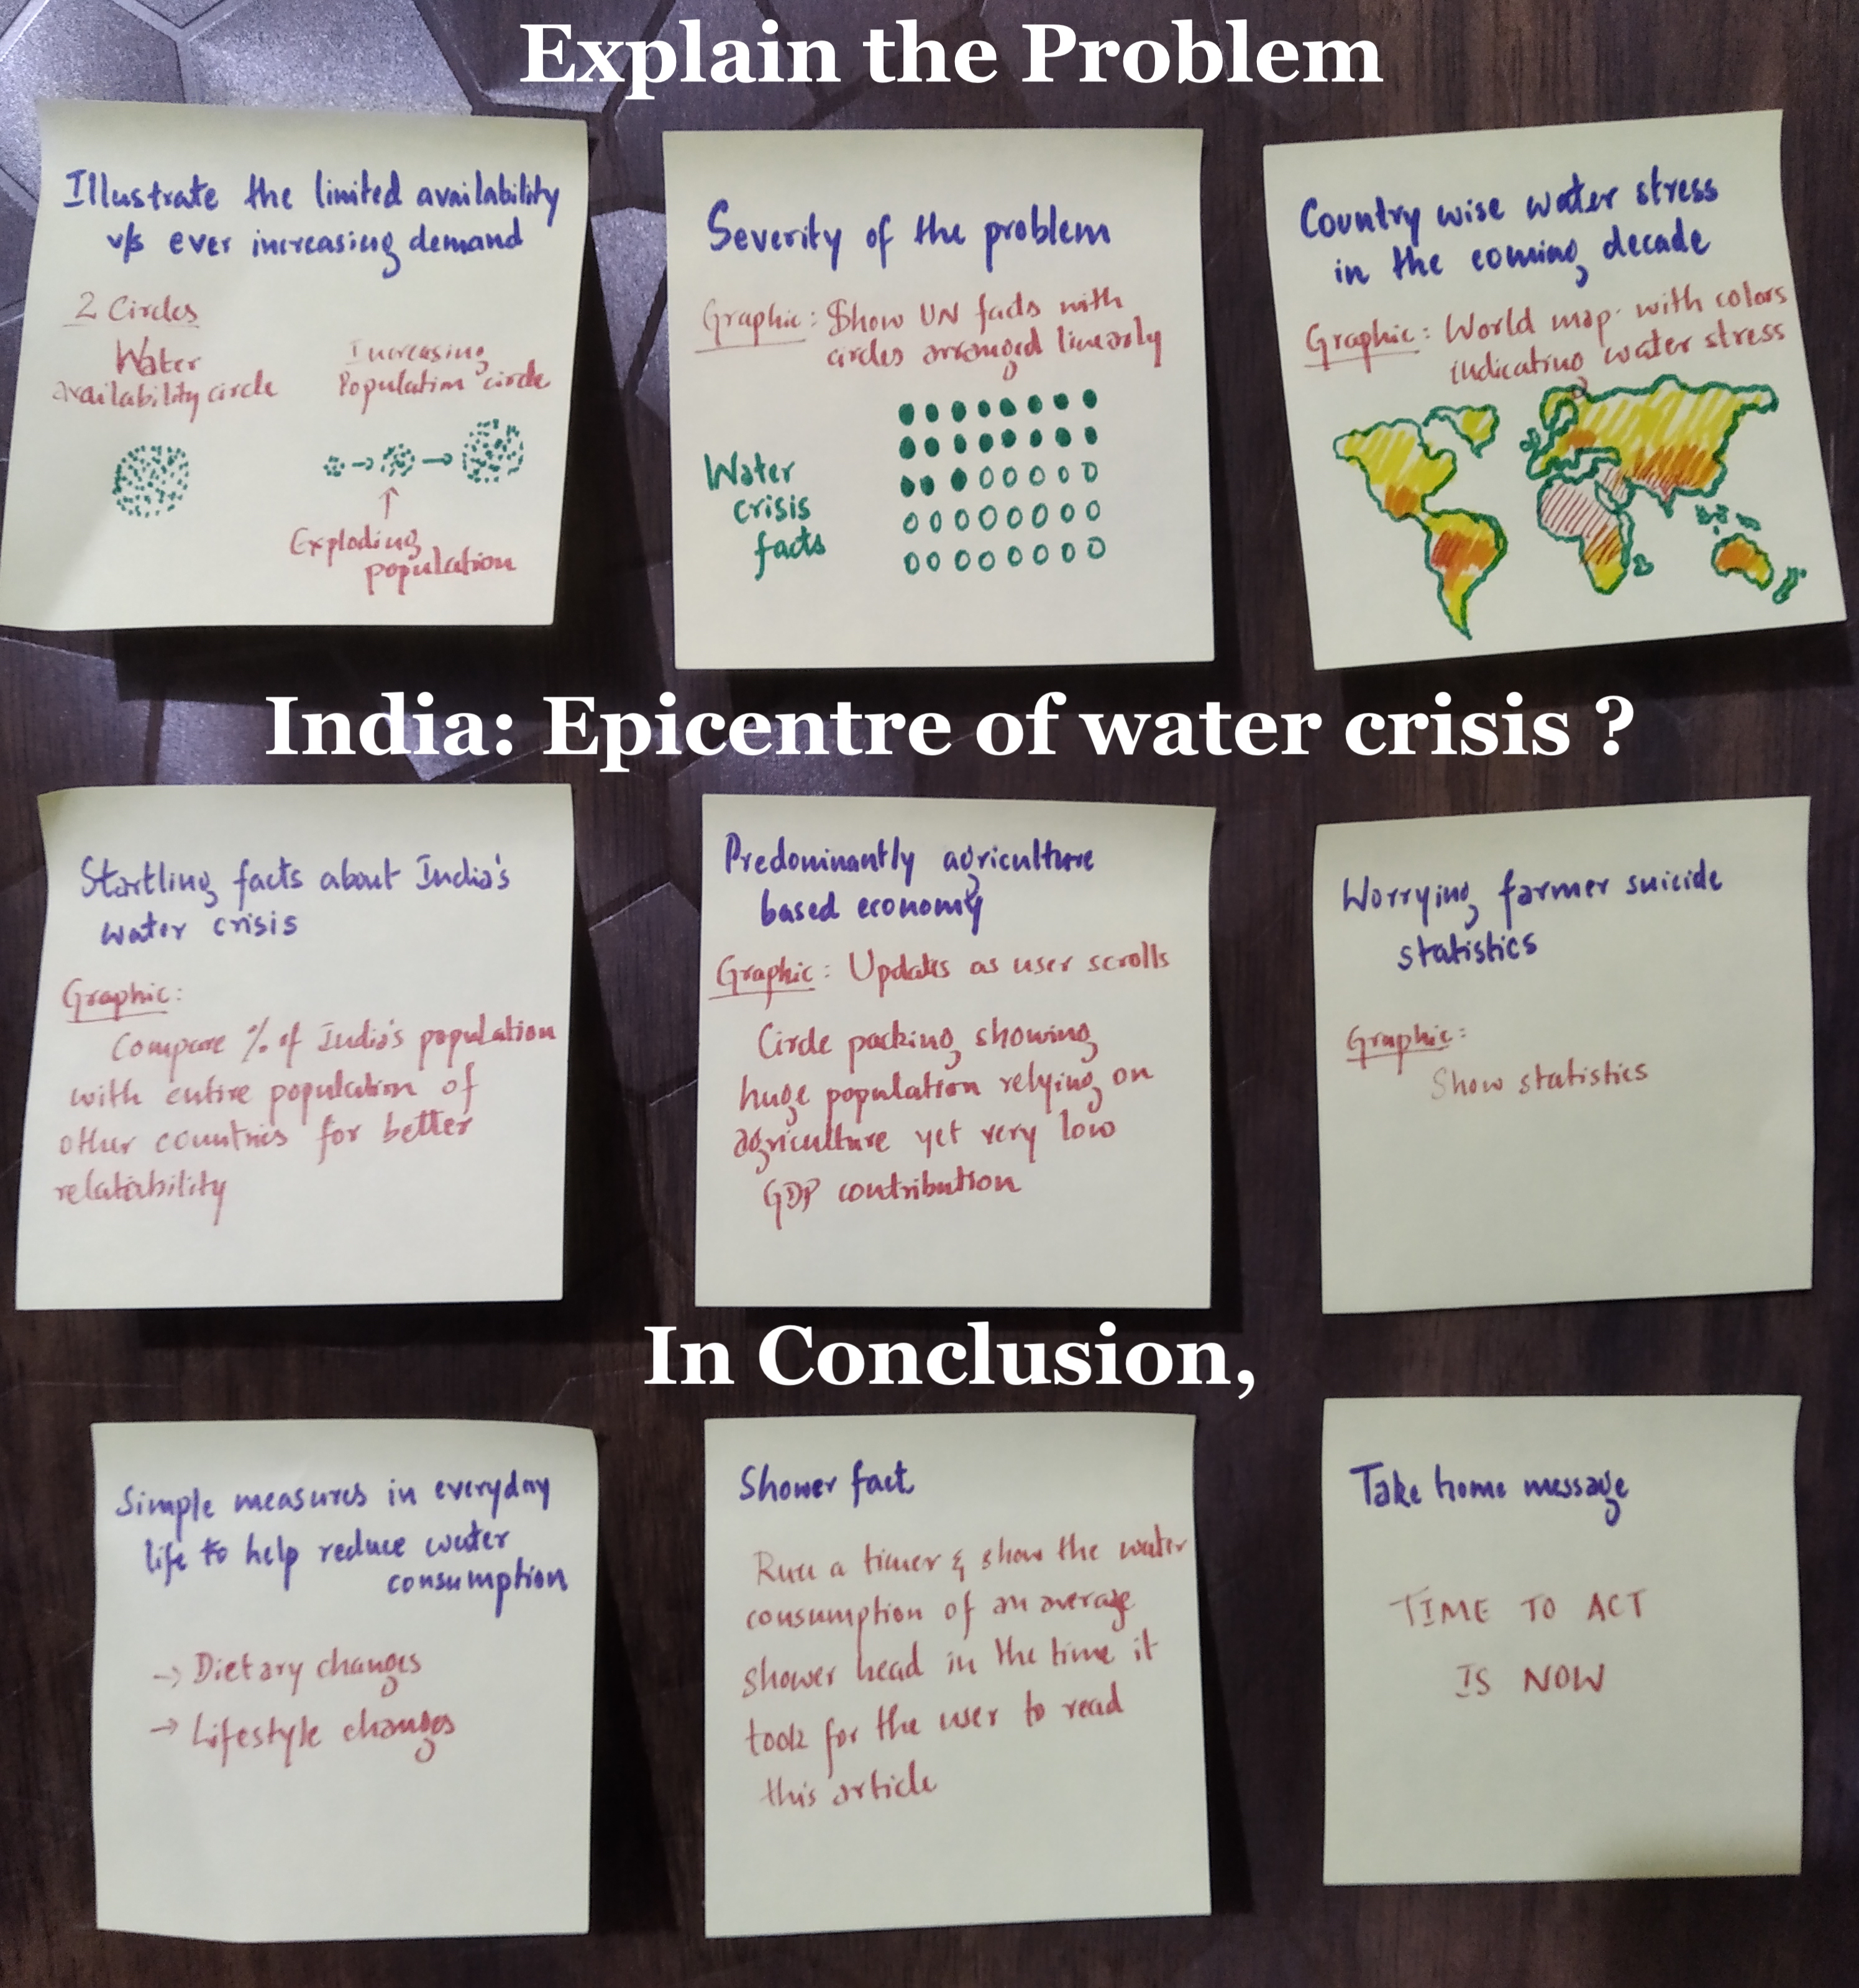 Explain the Problem
Illustrate the limited availability
v/s ever increasing demand
2 Circles
Water
availability circle
Increasing
Population circle
Exploding
population
Severity of the problem
Graphic: Show UN facts with
circles arranged linearly
Water
crisis
facts
Country wise water stress
in the coming decade
Graphic: World map with colors
indicating water stress
India: Epicentre of water crisis ?
Startling facts about India's
water crisis
Graphic:
Compare % of India's population
with entire population of
other countries for better
relatability
Predominantly agriculture
based economy
Graphic: Updates as user scrolls
Circle packing showing
huge population relying on
agriculture yet very low
GDP contribution
Worrying farmer suicide
statistics
Graphic:
Show statistics
In Conclusion,
Simple measures in everyday
life to help reduce water
consumption
→ Dietary changes
→ Lifestyle changes
Shower fact
Run a timer & show the water
consumption of an average
shower head in the time it
took for the user to read
this article
Take home message
TIME TO ACT
IS NOW